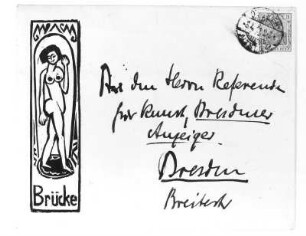 An den Herrn Referenten
für Kunst, Dresdner
Anzeiger
Dresden
Breitestr
Brücke